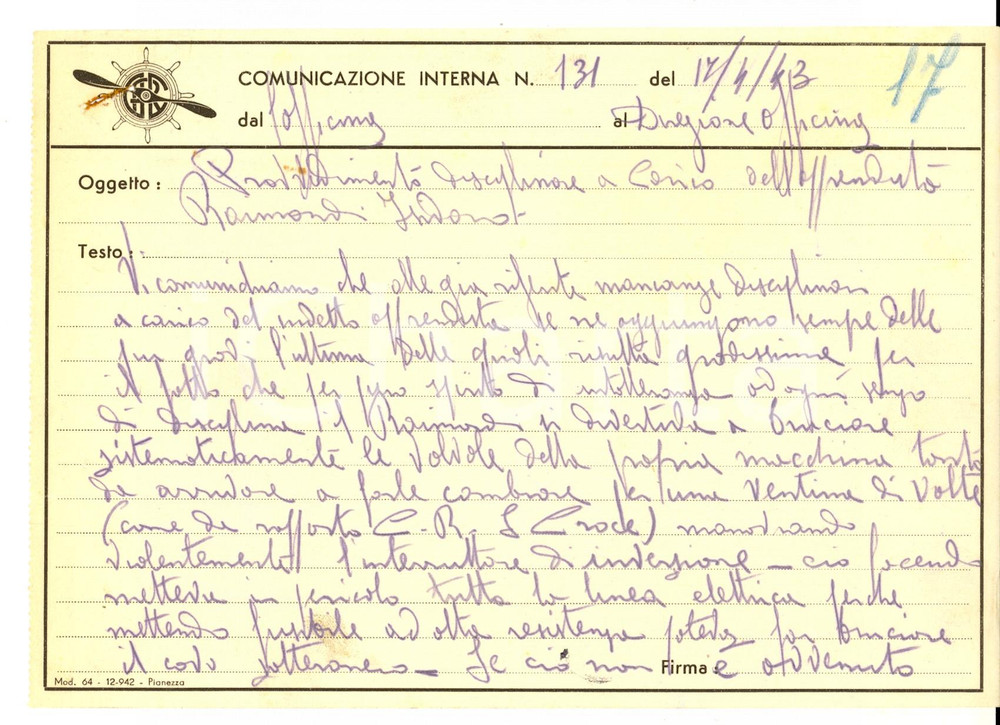 COMUNICAZIONE INTERNA N. 131 del 17/4/43 17
dal l'officina al Direzione Officina
Oggetto : Provvedimento disciplinare a carico dell'apprendista
Raimondi
Testo :
Vi comunichiamo che alle già riferite mancanze disciplinari
a carico del sudetto apprendista se ne aggiungono sempre delle
più gravi l'ultima delle quali risulta gravissima per
il fatto che per puro spirito di intolleranza ad ogni senso
di disciplina il Raimondi si divertiva a bruciare
sistematicamente le valvole della propria macchina tanto
da arrivare a farle cambiare per una ventina di volte
(come da rapporto C.R. Croce) manovrando
violentemente l'interruttore di inversione - ciò facendo
metteva in pericolo tutta la linea elettrica perché
mettendo fusibile ad alta resistenza poteva far bruciare
il cavo sotterraneo - Se ciò non è avvenuto
Firma :
Mod. 64 - 12-942 - Pianezza